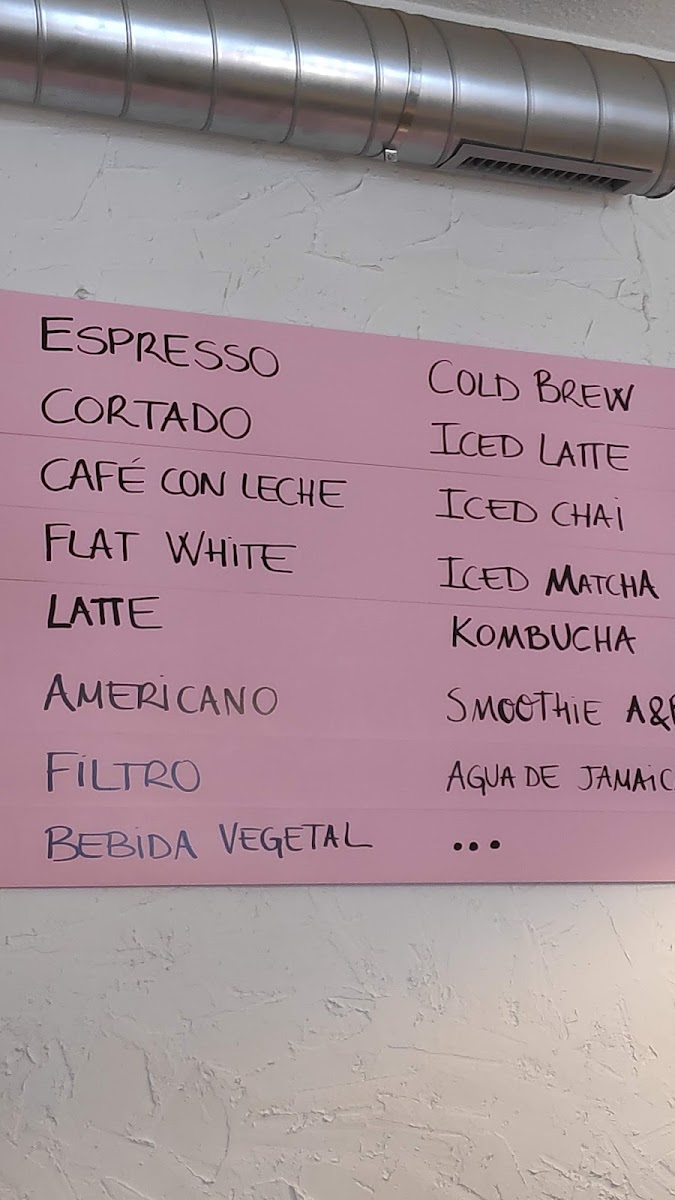 ESPRESSO
CORTADO
CAFÉ CON LECHE
FLAT WHITE
LATTE
AMERICANO
FILTRO
BEBIDA VEGETAL
COLD BREW
ICED LATTE
ICED CHAI
ICED MATCHA
KOMBUCHA
SMOOTHIE A&
AGUA DE JAMAIC
...